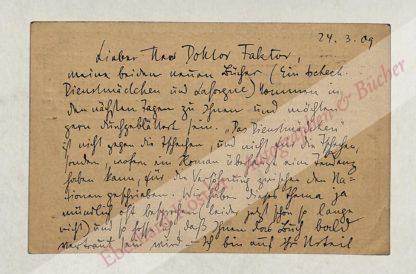 24.3.09
Lieber Herr Doktor Faktor,
meine beiden neuen Bücher (Ein tschech.
Dienstmädchen und Laforgue) kommen in
den nächsten Tagen zu Ihnen und möchten
gern durchgeblättert sein. „Das Dienstmädchen"
ist nicht gegen die Tschechen, und nicht für die Tschechen,
sondern, wofern ein Roman überhaupt eine Tendenz
haben kann, für die Versöhnung zwischen den Na-
tionen geschrieben. Wir haben dieses Thema ja
mündlich oft besprochen (leider jetzt schon so lange
nicht) und so hoffe ich, daß Ihnen das Buch bald
vertraut sein wird. – Ich bin auf Ihr Urteil
Eberhard Köstler Autographen & Bücher